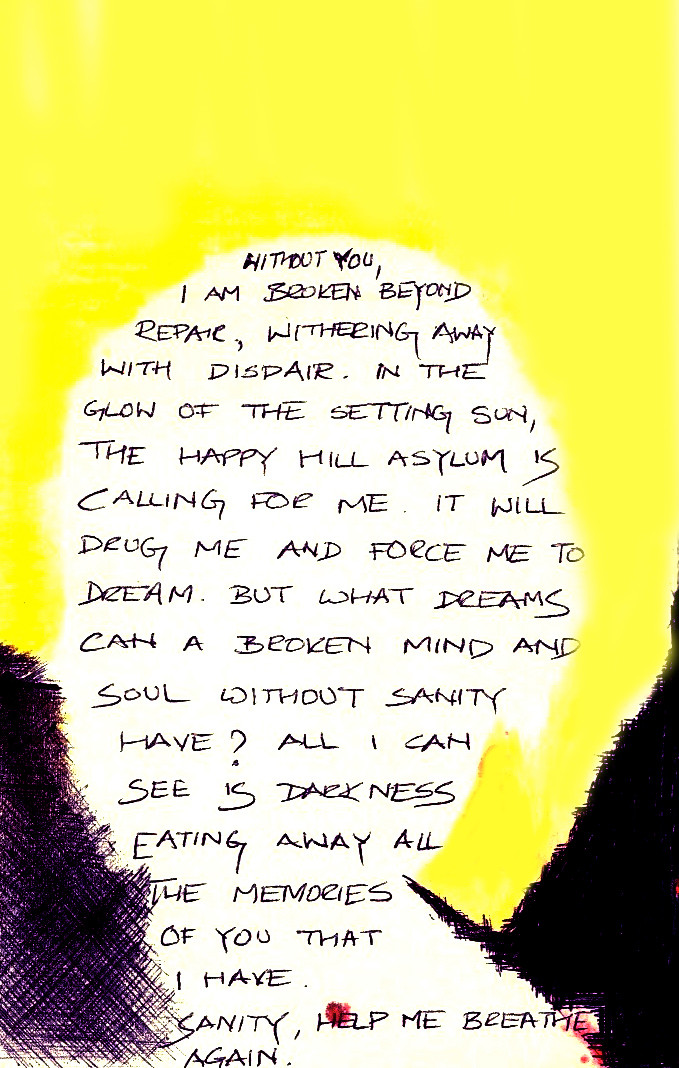 WITHOUT YOU,
I AM BROKEN BEYOND
REPAIR, WITHERING AWAY
WITH DISPAIR. IN THE
GLOW OF THE SETTING SUN,
THE HAPPY HILL ASYLUM IS
CALLING FOR ME. IT WILL
DRUG ME AND FORCE ME TO
DREAM. BUT WHAT DREAMS
CAN A BROKEN MIND AND
SOUL WITHOUT SANITY
HAVE? ALL I CAN
SEE IS DARKNESS
EATING AWAY ALL
THE MEMORIES
OF YOU THAT
I HAVE.
SANITY, HELP ME BREATHE
AGAIN.